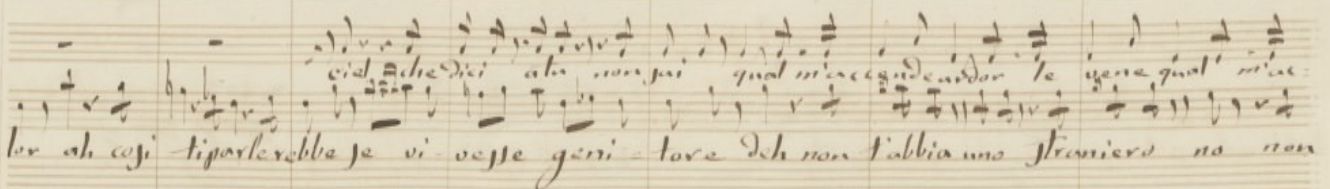 ciel che dici ah tu non sai qual m'accende ardor le vene qual m'ac-
lor ah cosi ti parlerebbe se vi-vesse geni-tore deh non t'abbia uno straniero no non